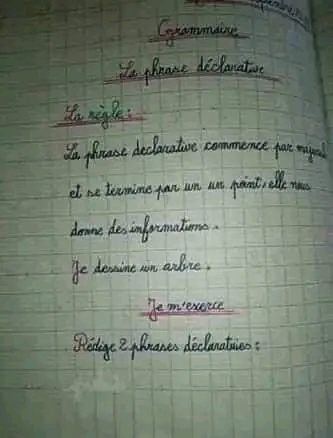 Grammaire
La phrase déclarative
La règle :
La phrase declarative commence par
et se termine par un un point, elle nous
donne des informations.
Je dessine un arbre.
Je m'exerce
Rédige 2 phrases déclaratives :